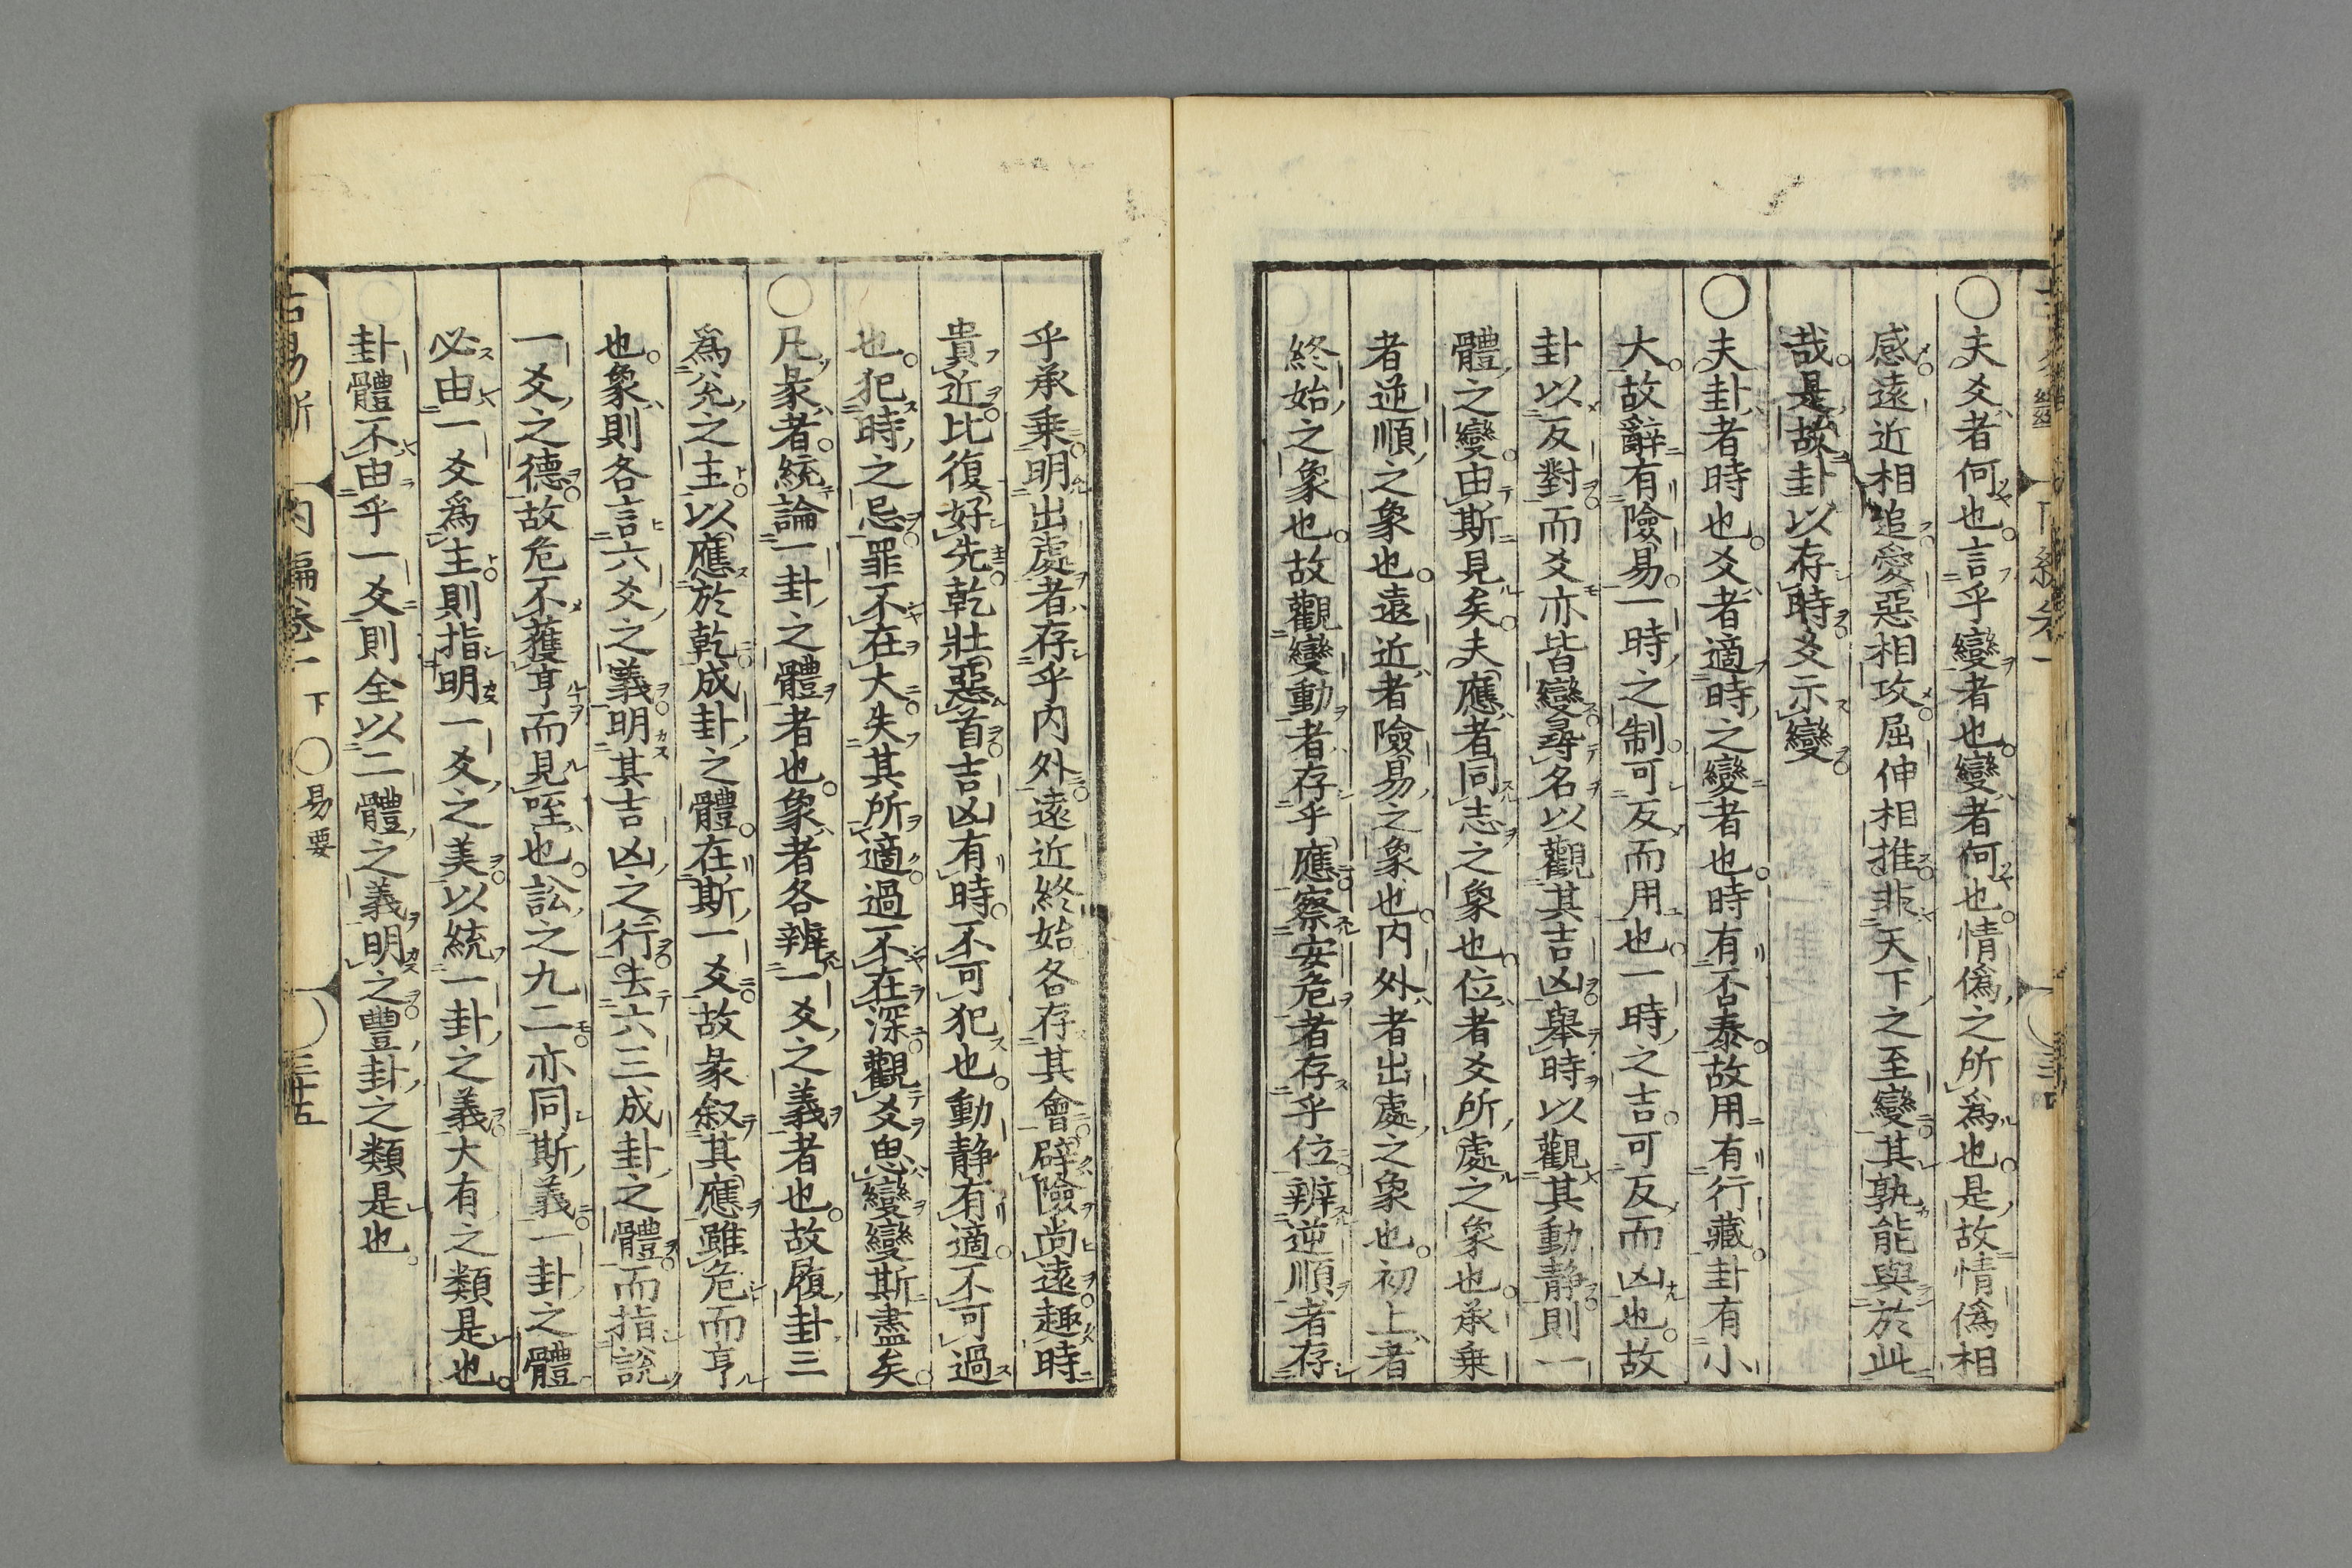 ○夫爻者何也言乎變者也變者何也情僞之所爲也是故情僞相
感遠近相追愛惡相攻屈伸相推非天下之至變其孰能與於此
哉是故卦以存時爻示變
○夫卦者時也爻者適時之變者也時有否泰故用有行藏卦有小
大故辭有險易一時之制可反而用也一時之吉可反而凶也故
卦以反對而爻亦皆變尋名以觀其吉凶舉時以觀其動靜則一
體之變由斯見矣夫應者同志之象也位者爻所處之象也承乗
者逆順之象也遠近者險易之象也内外者出處之象也初上者
終始之象也故觀變動者存乎應察安危者存乎位辨逆順者存
乎承乗明出處者存乎内外遠近終始各存其會辟險尚遠趣時
貴近比復好先乾壯惡首吉凶有時不可犯也動靜有適不可過
也犯時之忌罪不在大失其所適過不在深觀爻思變變斯盡矣
○凡彖者統論一卦之體者也象者各辨一爻之義者也故履卦三
爲兌之主以應於乾成卦之體在斯一爻故彖叙其應雖危而亨
也象則各言六爻之義明其吉凶之行去六三成卦之體而指說
一爻之德故危不獲亨而見咥也訟之九二亦同斯義一卦之體
必由一爻爲主則指明一爻之美以統一卦之義大有之類是也
卦體不由乎一爻則全以二體之義明之豐卦之類是也
古易斷 内編卷一 下 ○易要 三十五